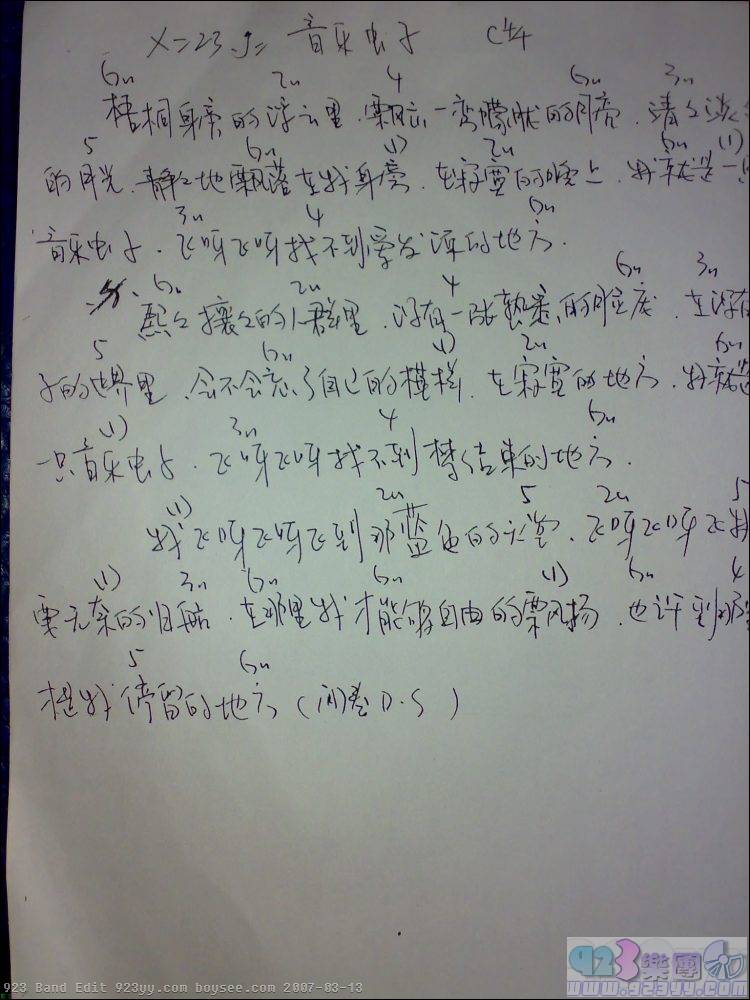 音乐虫子 C 4/4
6m 2m 4 6m 3m
梧桐身旁的浮云里、飘点一弯朦胧的月亮、清々淡
5 6m (1) 2m 6m (1)
的月光、静々地飘落在我身旁、在寂寞的晚上、我就是一
3m 4 6m
音乐虫子、飞呀飞呀找不到爱发源的地方.
6m 2m 4 6m 3m
熙々攘々的人群里、没有一张熟悉的脸庞、在没有
5 6m (1) 2m 6m
子的世界里、会不会忘了自己的模样、在寂寞的地方、我就是
(1) 3m 4 6m
一只音乐虫子、飞呀飞呀找不到梦结束的地方.
(1) 2m 5 2m 5
我飞呀飞呀飞到那蓝色的天堂、飞呀飞呀飞我
(1) 3m 6m 6m (1) 6m 4
要无奈的归航、在那里我才能够自由的飘扬、也许到那里
5 6m
才是我停留的地方(间奏 D.S)
923樂團
www.923yy.com
923 Band Edit 923yy.com boysee.com 2007-03-13